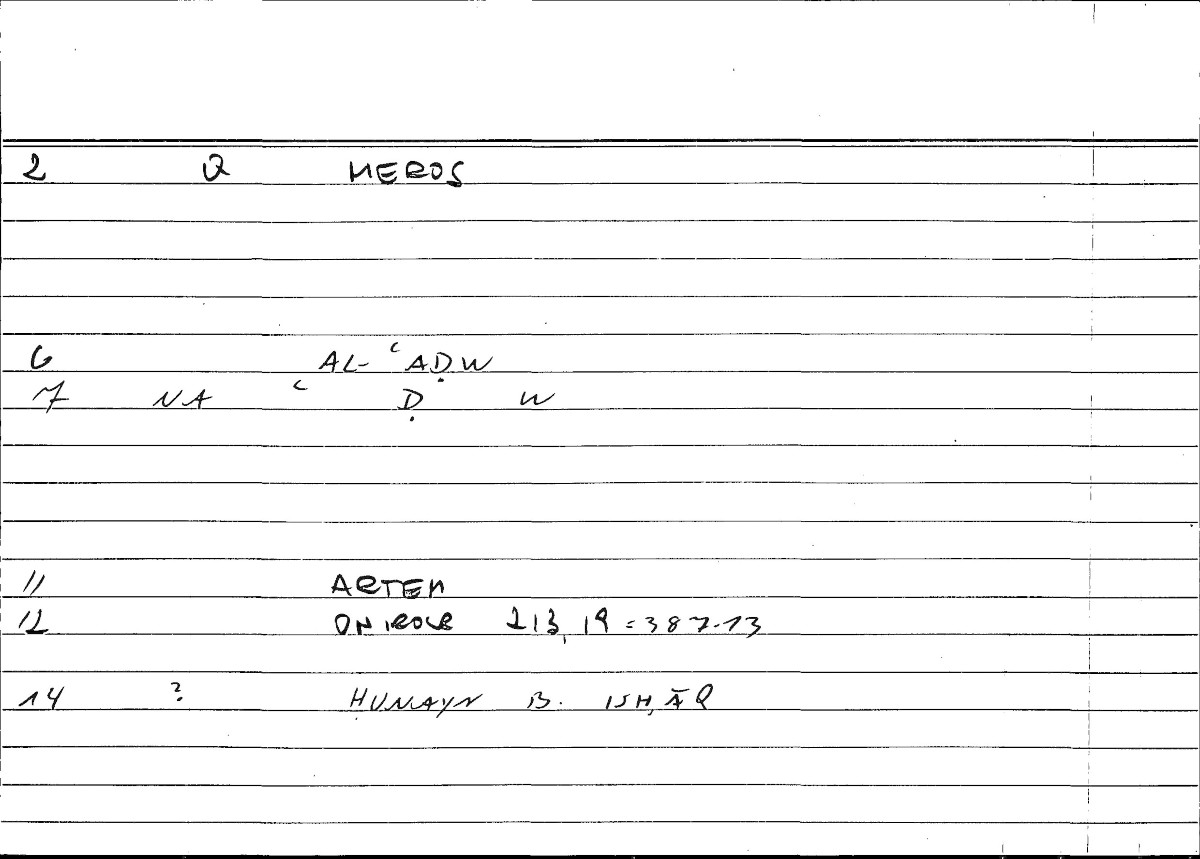 2 Q MEROS
6 AL- ʿAḌW
7 NA ʿ Ḍ W
11 ARTEM
12 ONIROCR 213, 19 = 387-13
14 ? ḤUNAYN B. ISḤĀQ